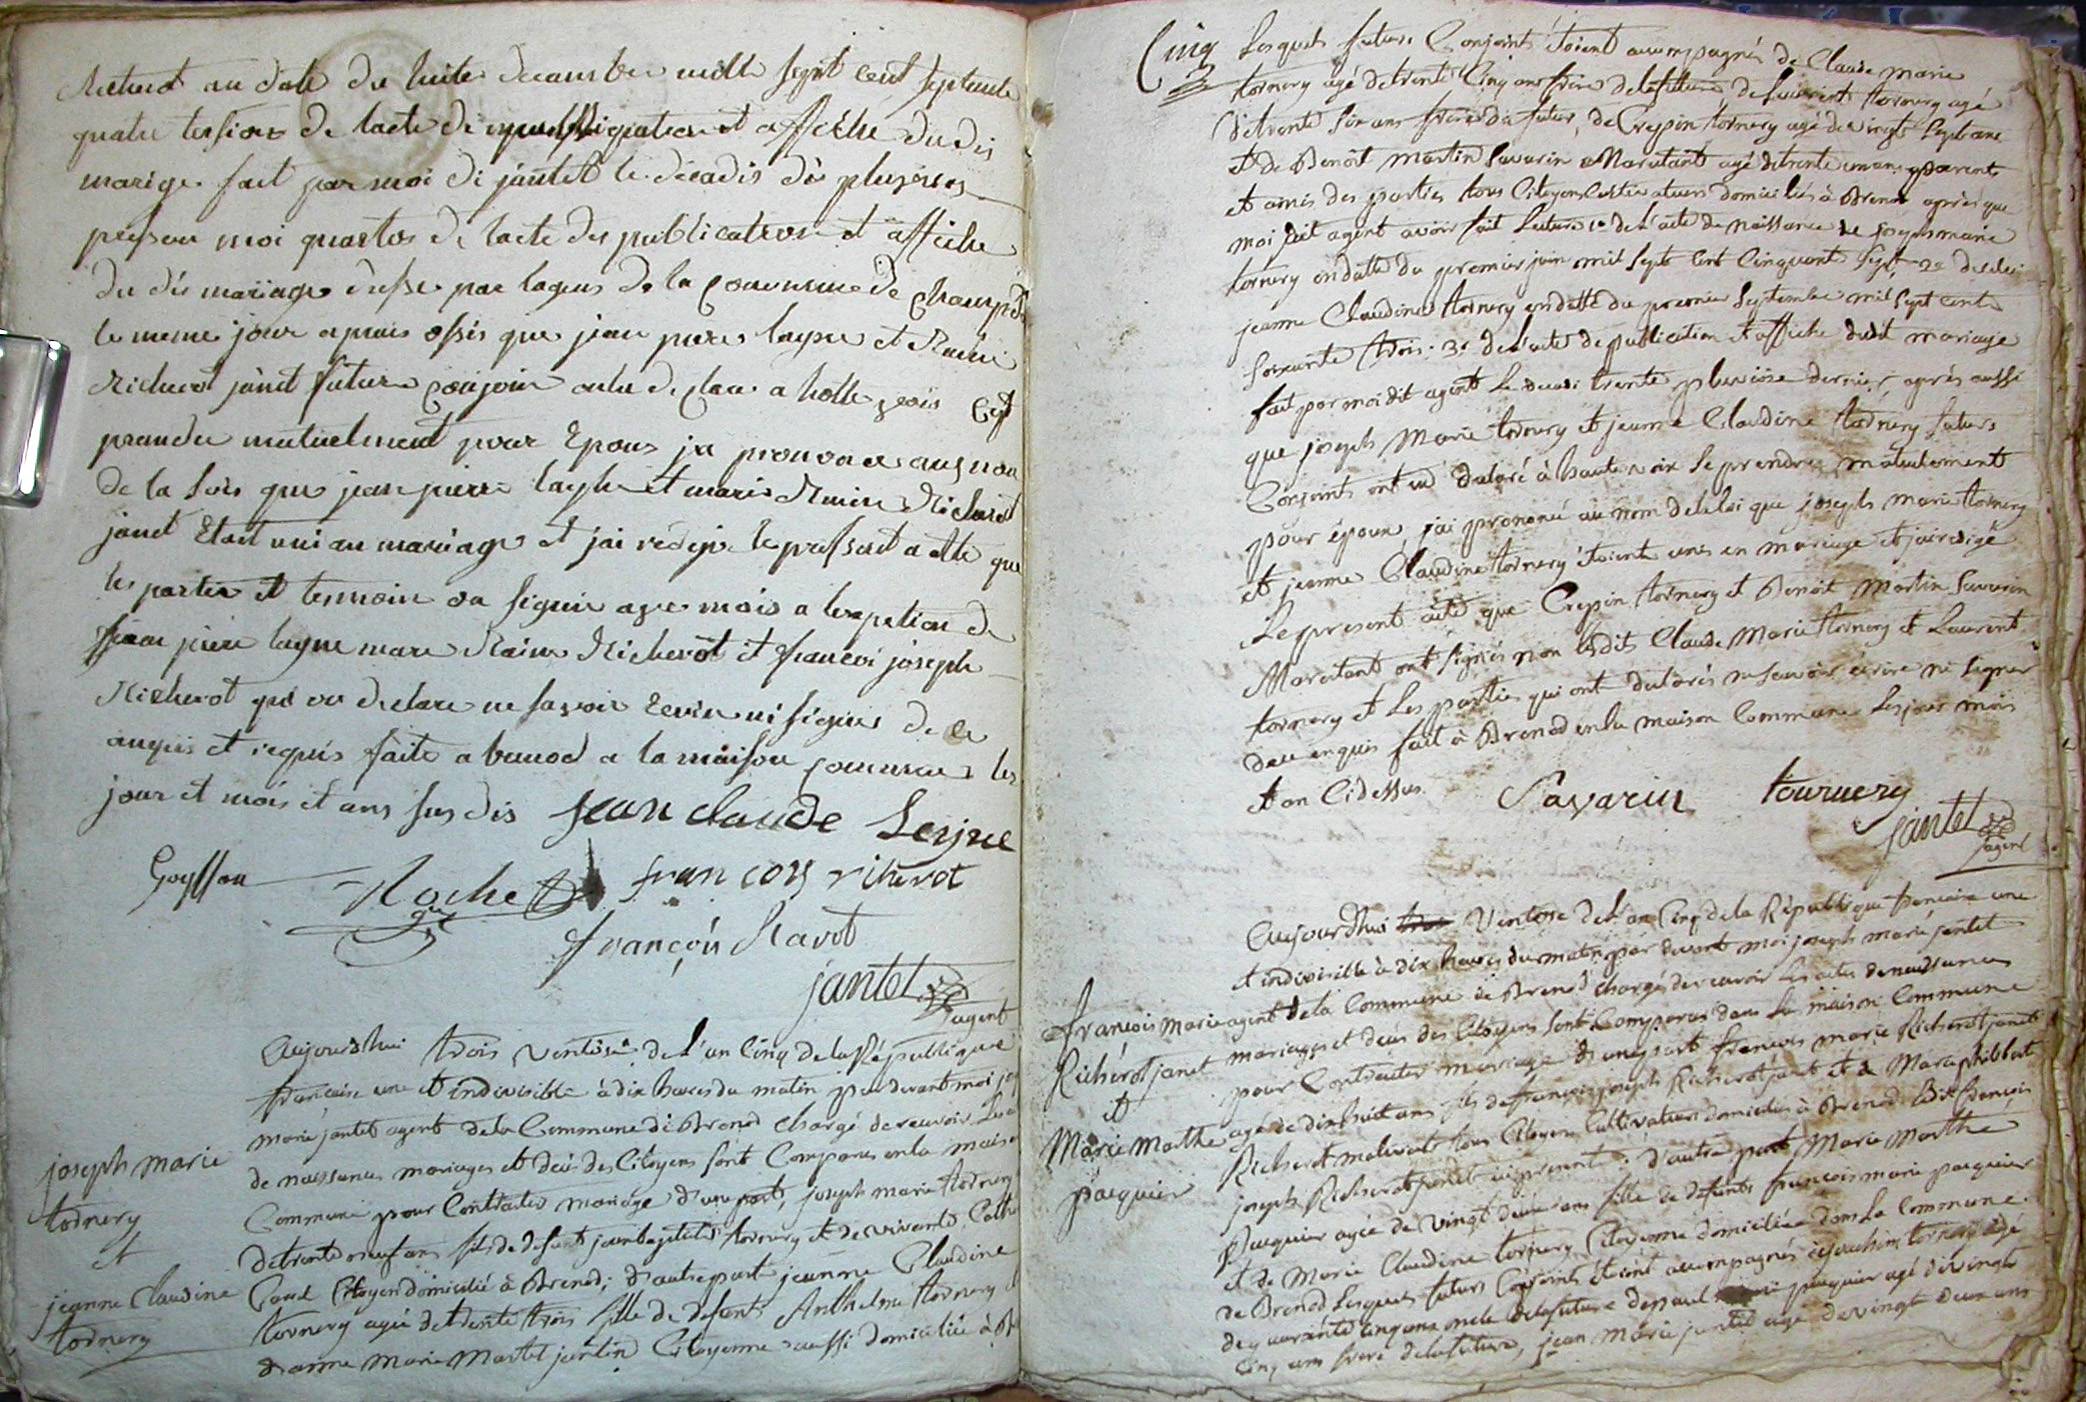 Richerot au date du huite decembre mille sept cent septente
quatre tersiors de lacte de publiquation et affiche du dis
marige fait par moi di jantet le decadis dis pluviose
presseu moi quartos de lacte des publication et affiche
du dis mariage dresse par lagens de la commune de champd
le meme jour apruis ossis que jean piere laype et
Richerot janet futurs conjoin on declare a hotte vois
prandre mutuelment pour Epous ja prononce aus nom
de la lois que jean pierre et marie Richerot
janet Etait uni au mariage et jai redige le present acte que
les partis et temoin on signié avec mois a lexpetion de
jean piere Richerot et francoi joseph
Richerot qui on declare ne savoir Ecrire ni signier de ce
anquis et requis faite a brenod a la maison commune les
jour et mois et ans sus dis jean claude Leyne
Goysson
Roche francois richerot
françois Ravot
jantet
agent
Aujourdhui trois ventôse de l'an Cinq de la République
francaise une et indivisible à dix heures du matin par devant moi jos
marie jantet agent de la Commune de Brenod chargé de recevoir Les a
de naissances mariages et decès des Citoyens sont Comparus en la maiso
joseph marie
Commune pour Contracter mariage d'une part, joseph marie tornery
tornery
de trente neuf ans fils de defunt jean baptiste tornery et de vivante Cathe
et
Carel Citoyen domicilié à Brenod; d'autre part jeanne Claudine
jeanne Claudine
tornery agée de trente trois fille de defunt Anthelme tornery et
tornery
d'anne marie Martel jantin Citoyenne aussi domiciliée à Br
Cinq Lesquels futurs Conjoints étoient accompagnés de Claude marie
tornery agé de trente Cinq ans frère de la future, de Laurent tornery agé
de trente six ans frère du futur, de Crepin tornery agé de vingt sept ans
et de Benoit Martin Savarin Maratant agé de trente un ans parents
et amis des parties tous Citoyens Cultivateurs domiciliés à Brenod après que
moi dit agent avoir fait Lecture 1o de L'acte de Naissance de joseph marie
tornery en datte du premier juin mil Sept Cent Cinquante Sept 2o de celui
jeanne Claudine tornery en datte du premier Septembre mil Sept Cent
Soixante trois; 3o de L'acte de publication et affiche dudit mariage
fait par moi dit agent Le decadi trente pluviôse dernier, après aussi
que joseph Marie tornery et jeanne Claudine tornery futurs
Conjoints ont eu declaré à haute voix Se prendre mutuelement
pour époux, j'ai prononcé au nom de la loi que joseph marie tornery
et jeanne Claudine tornery étoient unis en mariage et j'ai redigé
Le present acte que Crepin tornery et Benoit Martin Savarin
Maratant ont Signés non Lesdits Claude Marie tornery et Laurent
tornery et Les parties qui ont declarés ne Savoir écrire ni signer
de ce enquis fait à Brenod en la maison Commune Les jour mois
et an Cidessus. Savarin tournery
jantet
agent
Aujourd'hui Ventose de L'an Cinq de la République francaise une
et indivisible à dix heures du matin par devant moi joseph marie jantet
François Marie
agent de la Commune de Brenod chargé de recevoir Les actes de naissances
Richerot janet
mariages et decès des Citoyens Sont Comparus dans La maison Commune
et
pour Contracter mariage d'une part francois marie Richerot janet
Marie Marthe
agé de dixhuit ans fils de francois joseph Richerot janet et de Marie philiberte
pacquier
Richerot tous Citoyens Cultivateurs domiciliés à Brenod Ledit francois
joseph Richerot janet ici present: d'autre part Marie Marthe
Pacquier agée de vingt deux ans fille de defunts francois marie pacquier
et de Marie Claudine tornery Citoyenne domiciliée dans La Commune
de Brenod Lesquels futurs Conjoints étoient accompagnés de joachim tornery agé
de quarante cinq ans oncle de la future de paul pacquier agé de vingt
Cinq ans frere de la future, jean Marie jantet agé de vingt deux ans